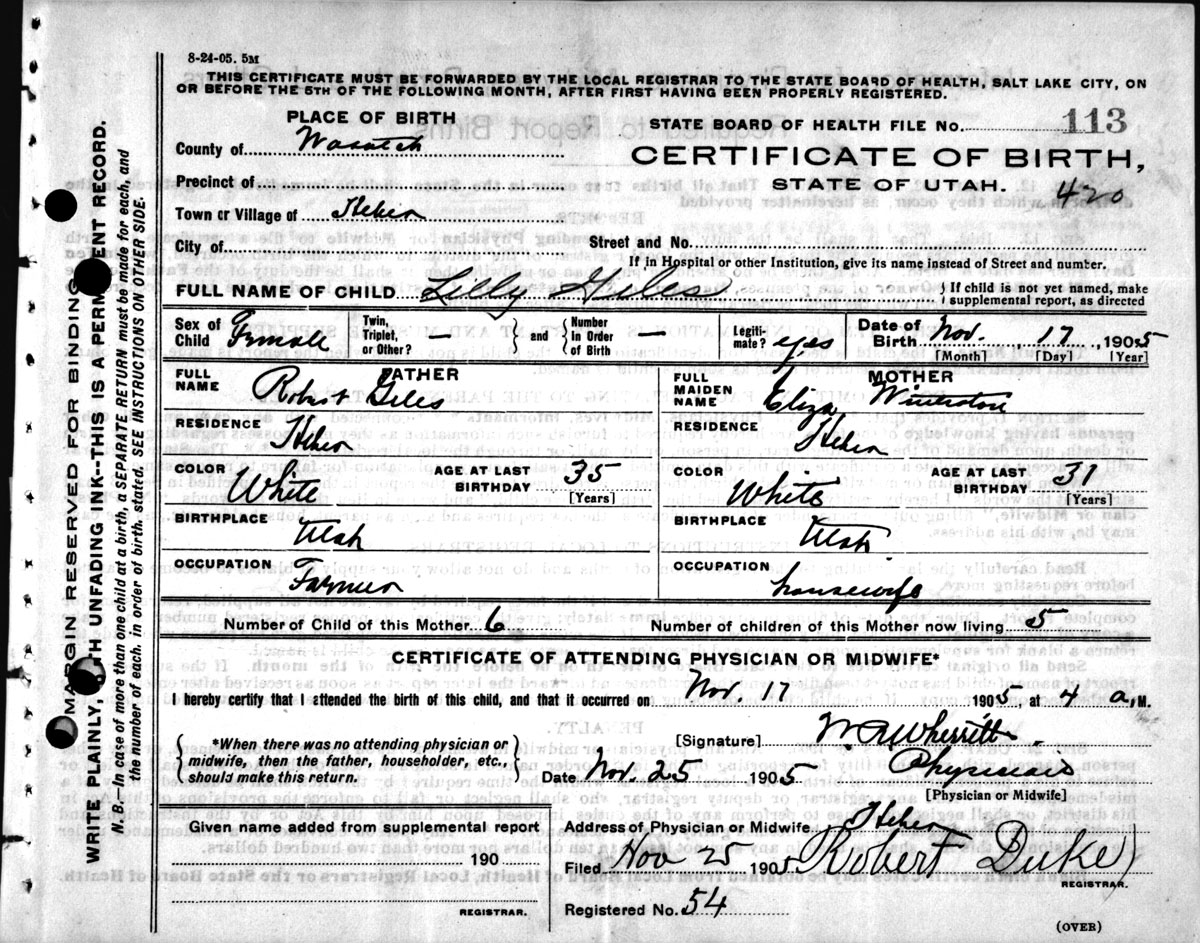 8-24-05. 5M
THIS CERTIFICATE MUST BE FORWARDED BY THE LOCAL REGISTRAR TO THE STATE BOARD OF HEALTH, SALT LAKE CITY, ON
OR BEFORE THE 5TH OF THE FOLLOWING MONTH, AFTER FIRST HAVING BEEN PROPERLY REGISTERED.
PLACE OF BIRTH
STATE BOARD OF HEALTH FILE NO. 113
County of Wasatch
CERTIFICATE OF BIRTH,
Precinct of
STATE OF UTAH.
420
Town or Village of Heber
City of
Street and No.
If in Hospital or other Institution, give its name instead of Street and number.
FULL NAME OF CHILD Lilly Giles
If child is not yet named, make
supplemental report, as directed
Sex of Child Female
Twin, Triplet, or Other? —
and
Number in Order of Birth —
Legitimate? yes
Date of Birth Nov. 17 1905
[Month] [Day] [Year]
FATHER
FULL NAME Robert Giles
MOTHER
FULL MAIDEN NAME Eliza Winterton
RESIDENCE Heber
RESIDENCE Heber
COLOR White
AGE AT LAST BIRTHDAY 35 [Years]
COLOR White
AGE AT LAST BIRTHDAY 31 [Years]
BIRTHPLACE Utah
BIRTHPLACE Utah
OCCUPATION Farmer
OCCUPATION housewife
Number of Child of this Mother 6
Number of children of this Mother now living 5
CERTIFICATE OF ATTENDING PHYSICIAN OR MIDWIFE*
I hereby certify that I attended the birth of this child, and that it occurred on Nov. 17 1905, at 4 a, M.
*When there was no attending physician or
midwife, then the father, householder, etc.,
should make this return.
[Signature] W R Wherritt
Date Nov. 25 1905
Physician
[Physician or Midwife]
Given name added from supplemental report
190
REGISTRAR.
Address of Physician or Midwife Heber
Filed Nov 25 1905 Robert Duke
REGISTRAR.
Registered No. 54
(OVER)
MARGIN RESERVED FOR BINDING
WRITE PLAINLY, WITH UNFADING INK--THIS IS A PERMANENT RECORD.
N. B.—In case of more than one child at a birth, a SEPARATE RETURN must be made for each, and
the number of each, in order of birth, stated. SEE INSTRUCTIONS ON OTHER SIDE.